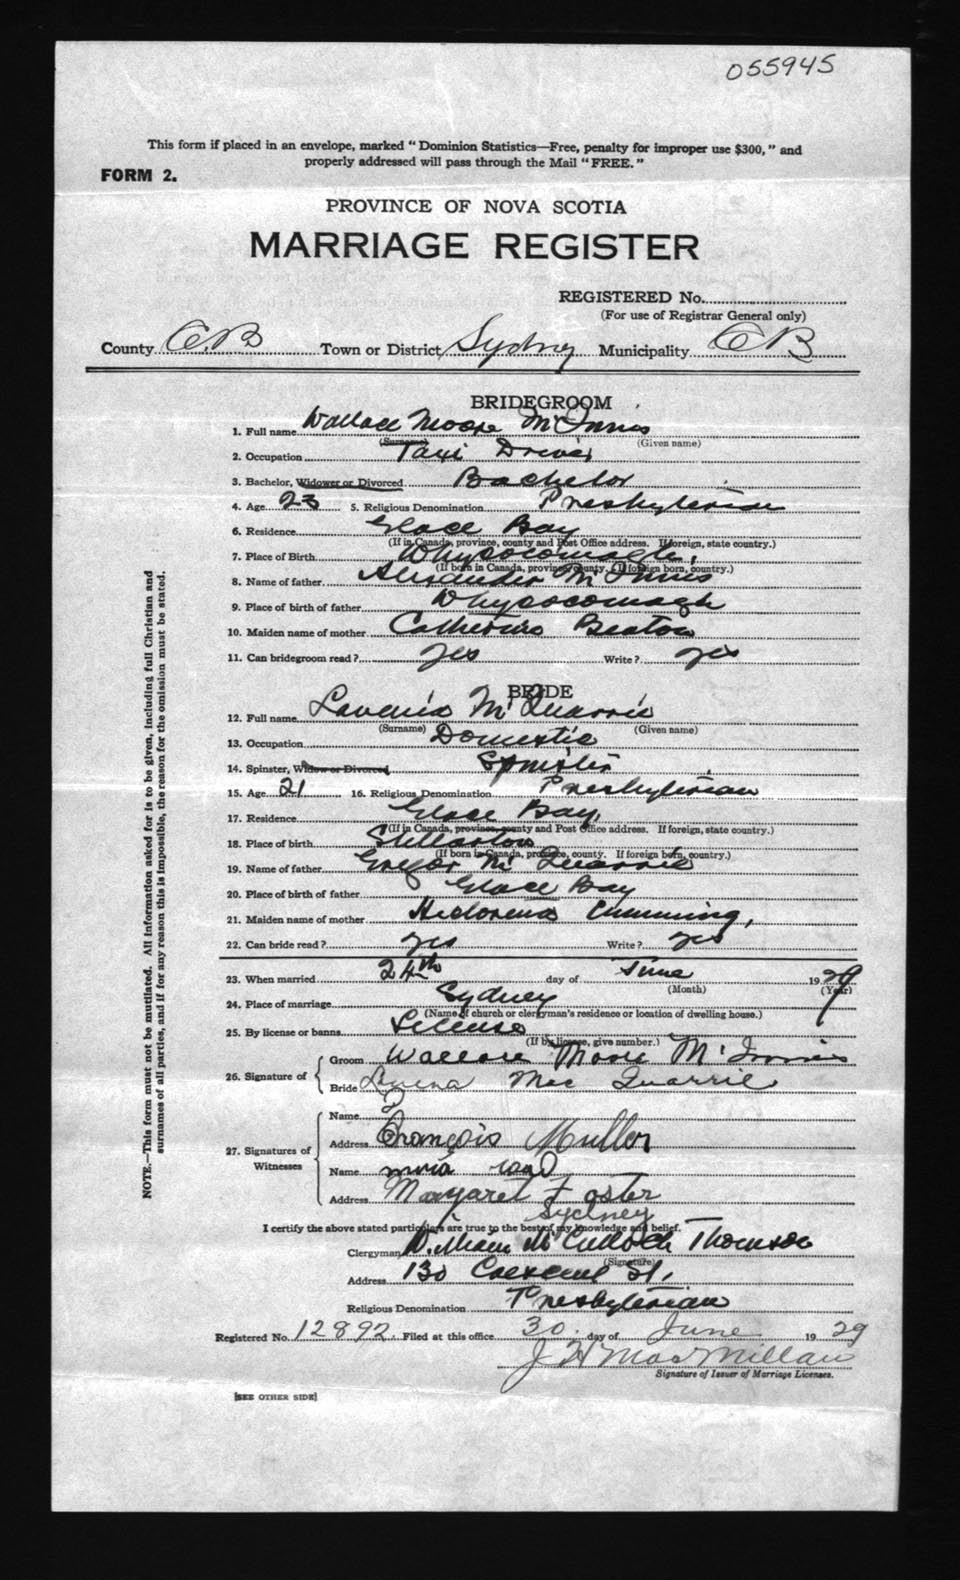 055945
This form if placed in an envelope, marked "Dominion Statistics—Free, penalty for improper use $300," and
properly addressed will pass through the Mail "FREE."
FORM 2.
PROVINCE OF NOVA SCOTIA
MARRIAGE REGISTER
REGISTERED No.
(For use of Registrar General only)
County C.B Town or District Sydney Municipality C B
BRIDEGROOM
1. Full name Wallace Moore McInnis
(Surname) (Given name)
2. Occupation Taxi Driver
3. Bachelor, Widower or Divorced Bachelor
4. Age 23 5. Religious Denomination Presbyterian
6. Residence Glace Bay
(If in Canada, province, county and Post Office address. If foreign, state country.)
7. Place of Birth Whycocomagh,
(If born in Canada, province, county. If foreign born, country.)
8. Name of father Alexander McInnis
9. Place of birth of father Whycocomagh
10. Maiden name of mother Catherine Beaton
11. Can bridegroom read? yes Write? yes
BRIDE
12. Full name McQuarrie
(Surname) (Given name)
13. Occupation Domestic
14. Spinster, Widow or Divorced Spinster
15. Age 21 16. Religious Denomination Presbyterian
17. Residence Glace Bay,
(If in Canada, province, county and Post Office address. If foreign, state country.)
18. Place of birth Stellarton
(If born in Canada, province, county. If foreign born, country.)
19. Name of father McQuarrie
20. Place of birth of father Glace Bay
21. Maiden name of mother Cumming,
22. Can bride read? yes Write? yes
23. When married 24th day of June 1929
(Month) (Year)
24. Place of marriage Sydney
(Name of church or clergyman's residence or location of dwelling house.)
25. By license or banns License
(If by license, give number.)
26. Signature of Groom Wallace Moore McInnis
Bride Mac Quarrie
27. Signatures of Witnesses
Name
Address François Muller
Name
Address Margaret Foster
Sydney
I certify the above stated particulars are true to the best of my knowledge and belief.
Clergyman William McCulloch Thomson
(Signature)
Address 130 Crescent St.
Religious Denomination Presbyterian
Registered No. 12892 Filed at this office 30 day of June 1929
J H MacMillan
Signature of Issuer of Marriage Licenses.
[SEE OTHER SIDE]
NOTE.—This form must not be mutilated. All information asked for is to be given, including full Christian and
surnames of all parties, and if for any reason this is impossible, the reason for the omission must be stated.